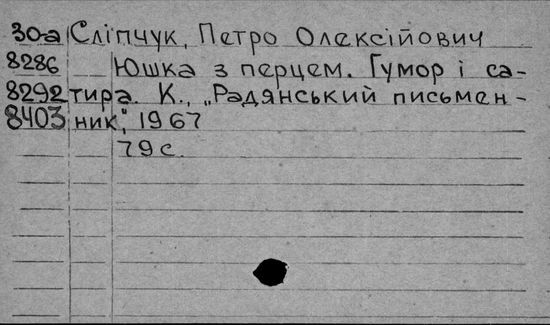 30-а Сліпчук, Петро Олексійович
8286 Юшка з перцем. Гумор і са-
8292 тира. К., „Радянський письмен-
8403 ник", 1967
79 с.